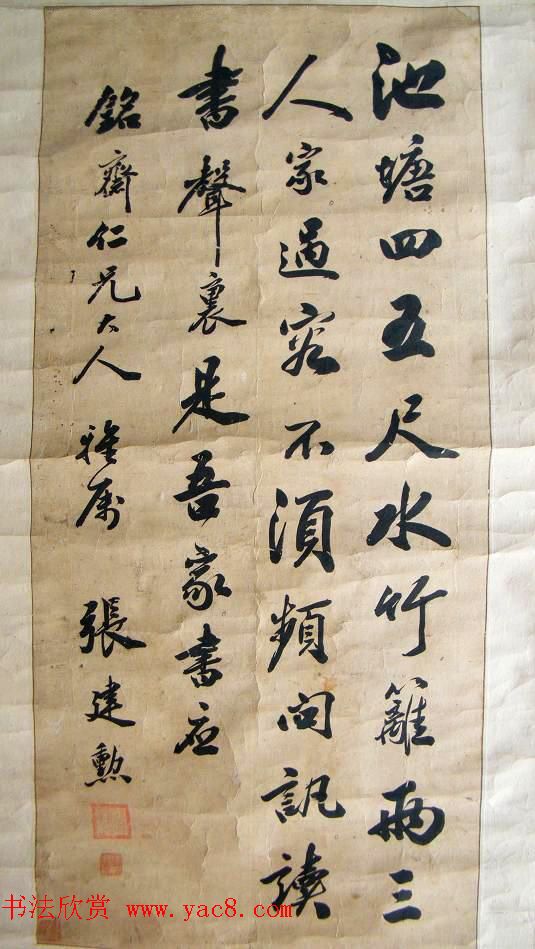 池塘四五尺水竹籬兩三
人家過客不須頻問訊讀
書聲裏是吾家書應
銘齋仁兄大人 雅屬 張建勲
书法欣赏 www.yac8.com